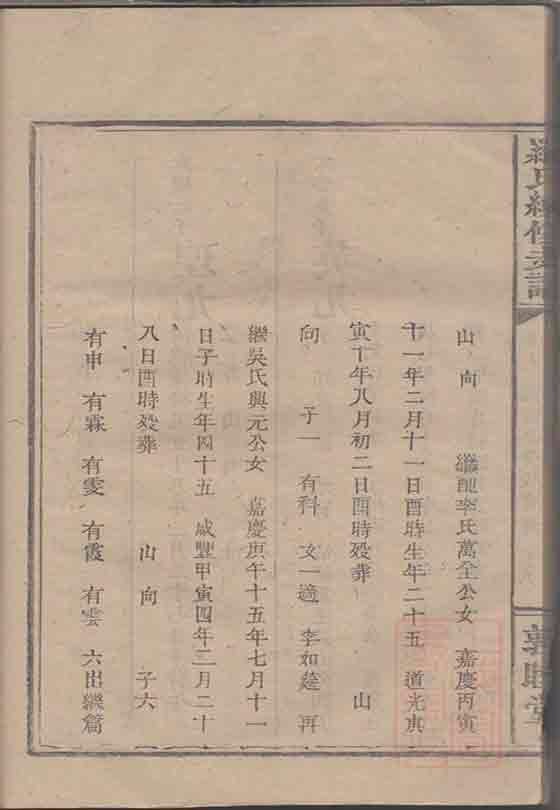 羅氏續修支譜 敦睦堂
山 向 繼配李氏萬全公女 嘉慶丙寅
十一年二月十一日酉時生年二十五 道光庚
寅十年八月初二日酉時殁葬 山
向 子一 有科 女一適 李如 再
繼吳氏興元公女 嘉慶庚午十五年七月十一
日子時生年四十五 咸豐甲寅四年二月二十
八日酉時殁葬 山向 子六
有申 有霖 有雯 有霞 有雲 六出繼篇